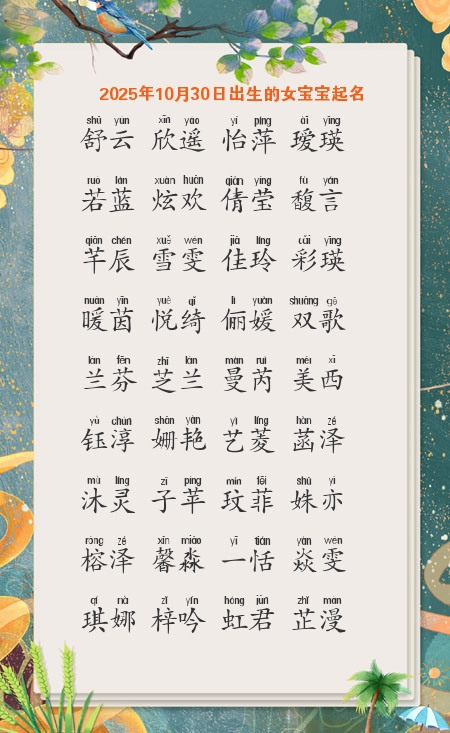 2025年10月30日出生的女宝宝起名
shū yún xīn yáo yí píng ài yīng
舒云 欣遥 怡萍 瑷瑛
ruò lán xuàn huān qiàn yíng fù yán
若蓝 炫欢 倩莹 馥言
qiān chén xuě wén jiā líng cǎi yīng
芊辰 雪雯 佳玲 彩瑛
nuǎn yīn yuè qǐ lì yuán shuāng gē
暖茵 悦绮 俪媛 双歌
lán fēn zhī lán màn ruì měi xī
兰芬 芝兰 曼芮 美西
yù chún shān yàn yì líng hàn zé
钰淳 姗艳 艺菱 菡泽
mù líng zǐ píng mín fēi shū yì
沐灵 子苹 玟菲 姝亦
róng zé xīn miǎo yī tián yàn wén
榕泽 馨淼 一恬 焱雯
qí nà zǐ yín hóng jūn zhǐ màn
琪娜 梓吟 虹君 芷漫